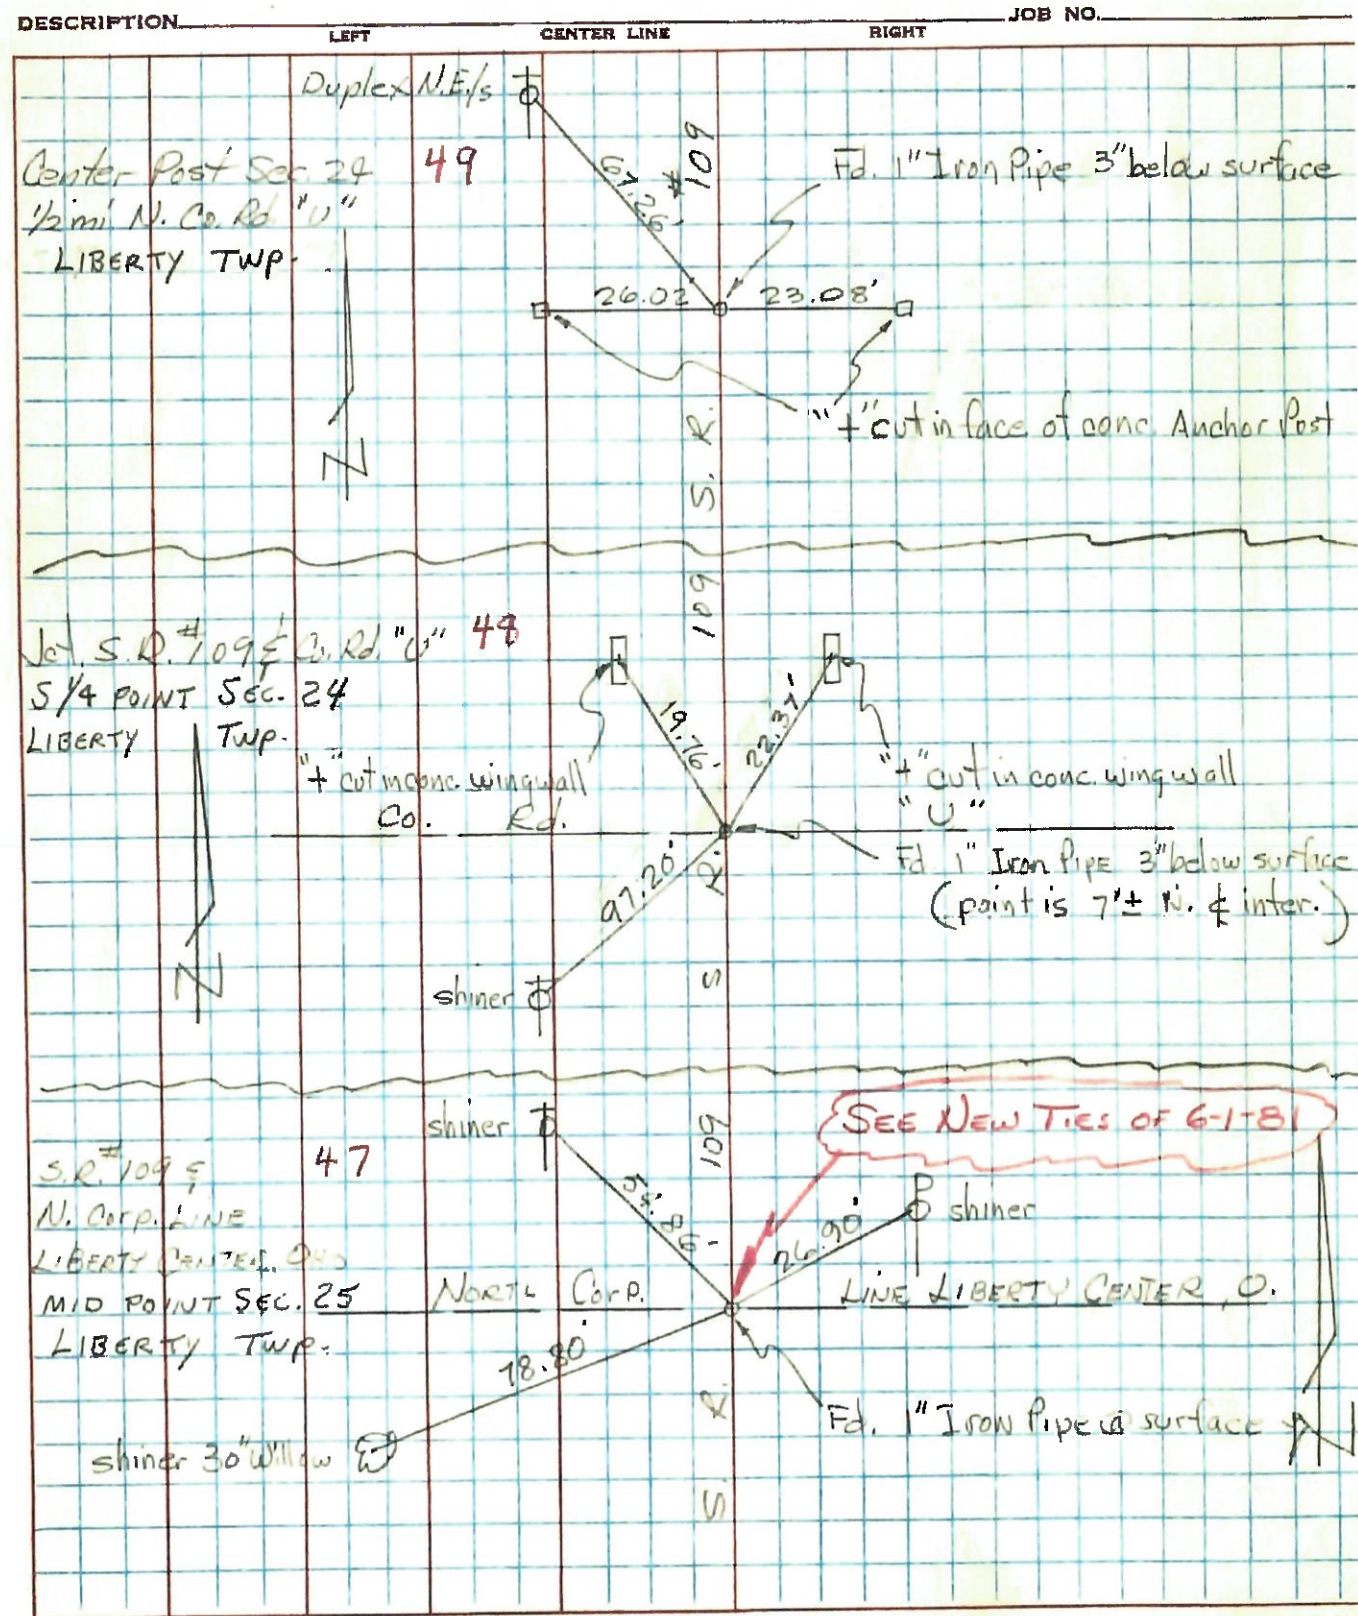 DESCRIPTION JOB NO.
LEFT CENTER LINE RIGHT
Duplex N.E/s
Center Post Sec. 24 49
1/2 mi N. Co. Rd. "U"
LIBERTY TWP.
67.26'
# 109
Fd. 1" Iron Pipe 3" below surface
26.02 23.08'
"+" cut in face of conc. Anchor Post
N
S. R.
109
Jct. S.R. #109 & Co. Rd. "U" 48
S 1/4 POINT SEC. 24
LIBERTY TWP.
19.76'
22.37'
"+" cut in conc. wingwall
"+" cut in conc. wingwall
Co. Rd. "U"
Fd. 1" Iron Pipe 3" below surface
(point is 7'± N. ₵ inter.)
97.20'
R.
S
N
shiner
shiner
109
SEE NEW TIES OF 6-1-81
S.R. #109 & 47
N. Corp. LINE
LIBERTY CENTER, OHIO
MID POINT SEC. 25
LIBERTY TWP.
54.86'
26.90'
shiner
NORTH Corp. LINE LIBERTY CENTER, O.
78.80'
Fd. 1" Iron Pipe @ surface
N
shiner 30" Willow
S. R.